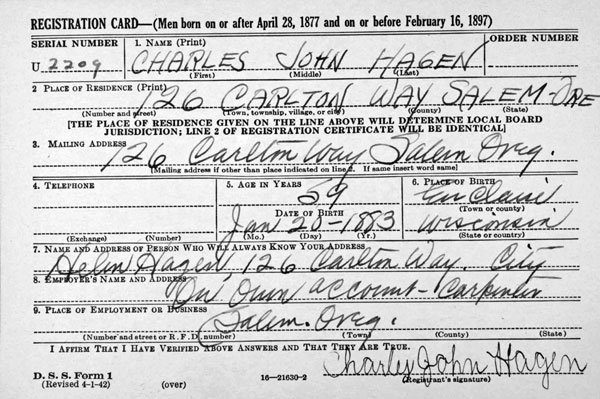 REGISTRATION CARD—(Men born on or after April 28, 1877 and on or before February 16, 1897)
SERIAL NUMBER
1. NAME (Print)
ORDER NUMBER
U 2209
CHARLES JOHN HAGEN
(First) (Middle) (Last)
2 PLACE OF RESIDENCE (Print)
126 CARLTON WAY SALEM-ORE
(Number and street) (Town, township, village, or city) (County) (State)
[THE PLACE OF RESIDENCE GIVEN ON THE LINE ABOVE WILL DETERMINE LOCAL BOARD
JURISDICTION; LINE 2 OF REGISTRATION CERTIFICATE WILL BE IDENTICAL]
3. MAILING ADDRESS
126 Carlton Way Salem Oreg.
(Mailing address if other than place indicated on line 2. If same insert word same)
4. TELEPHONE
5. AGE IN YEARS
6. PLACE OF BIRTH
59
Eau Claire
DATE OF BIRTH
(Town or county)
Jan 20-1883
Wisconsin
(Exchange) (Number) (Mo.) (Day) (Yr.) (State or country)
7. NAME AND ADDRESS OF PERSON WHO WILL ALWAYS KNOW YOUR ADDRESS
Hagen 126 Carlton Way. City
8. EMPLOYER'S NAME AND ADDRESS
On Own account-Carpenter
9. PLACE OF EMPLOYMENT OR BUSINESS
Salem. Oreg.
(Number and street or R. F. D. number) (Town) (County) (State)
I AFFIRM THAT I HAVE VERIFIED ABOVE ANSWERS AND THAT THEY ARE TRUE.
Charley John Hagen
D. S. S. Form 1
(Revised 4-1-42) (over) 16—21630-2 (Registrant's signature)